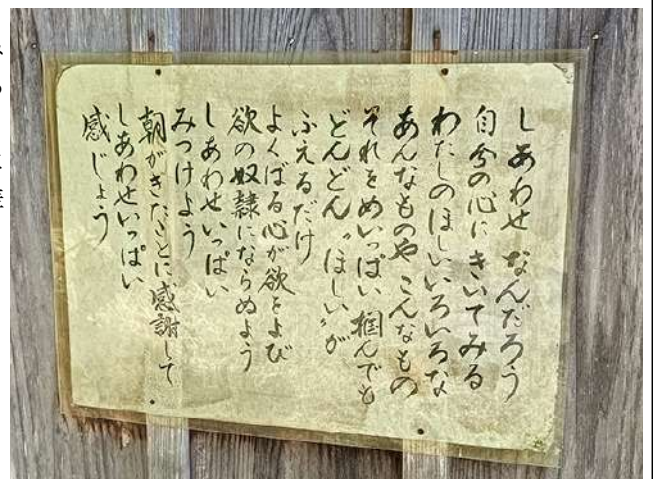 しあわせ なんだろう
自分の心に きいてみる
わたしのほしい いろいろな
あんなものや こんなもの
それをめいっぱい 掴んでも
どんどん“ほしい”が
ふえるだけ
よくばる心が欲をよび
欲の奴隷にならぬよう
しあわせいっぱい
みつけよう
朝がきたことに感謝して
しあわせいっぱい
感じょう